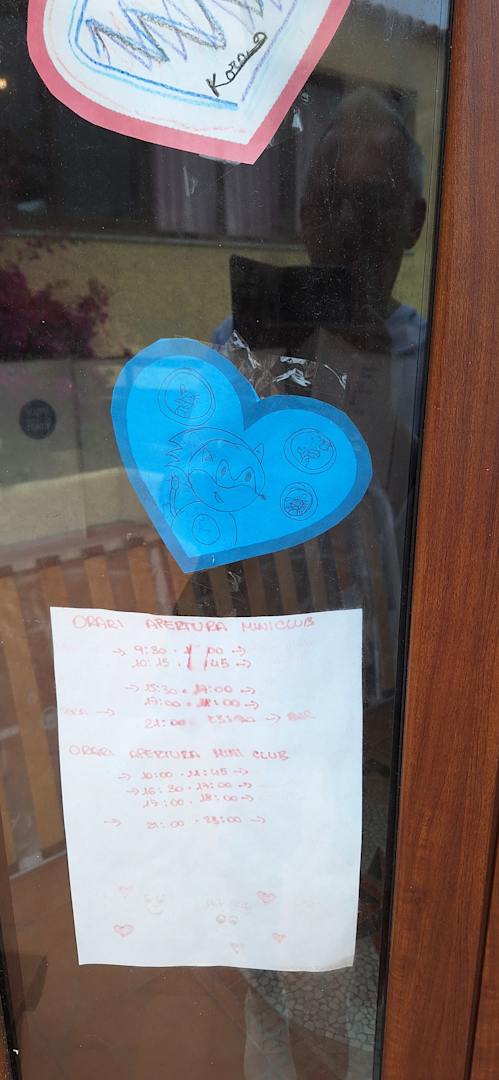 ORARI APERTURA MINICLUB
→ 9:30 · 00 →
10:15 · 45 →
→ 15:30 · 17:00 →
17:00 · 18:00 →
→ 21:00 ·
ORARI APERTURA MINI CLUB
→ 10:00 · 11:45 →
→ 16:30 · 17:00 →
17:00 · 18:00 →
→ 21:00 · 23:00 →